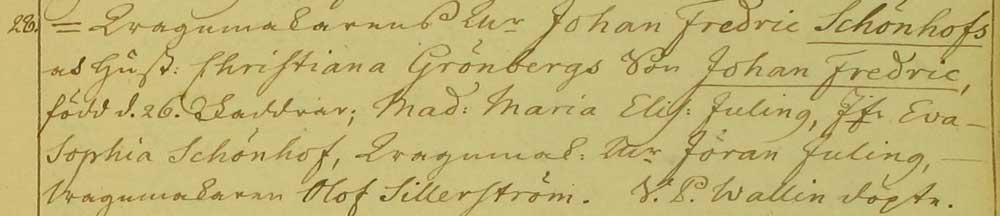 28. = Kragumakarens Mr Johan Fredric Schönhofs
as Hust: Christiana Grönbergs Son Johan Fredric,
född d. 26. Faddrar; Mad: Maria Elis: Juling, Jfr Eva
Sophia Schönhof, Kragumak: Mr Jöran Juling,
Kragumakaren Olof Sillerström. V. P. Wallin döpte.